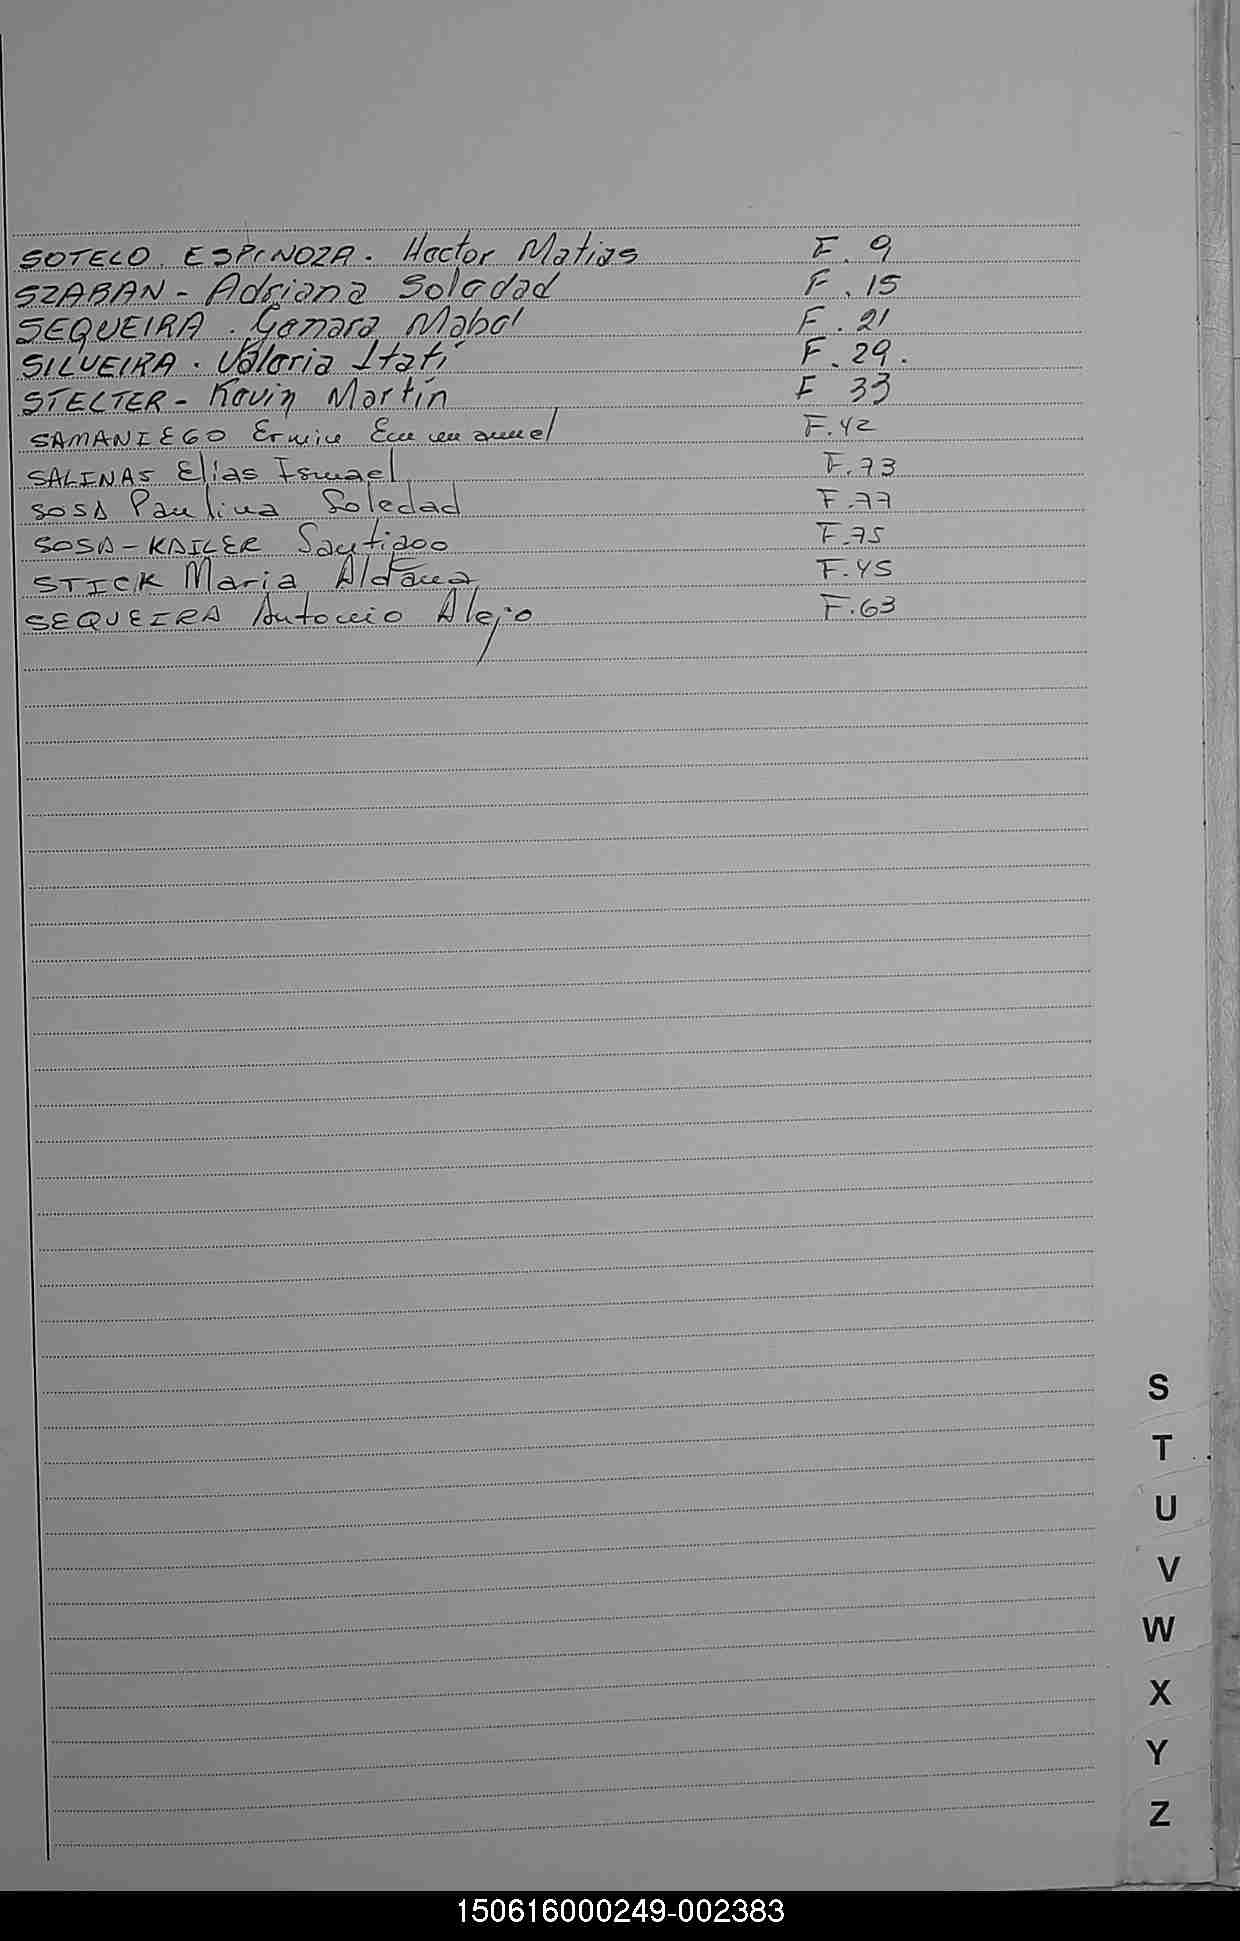 SOTELO ESPINOZA. Hector Matias F. 9
SZABAN - Adriana Soledad F. 15
SEQUEIRA. Genara Mabel F. 21
SILVEIRA. Valeria Itatí F. 29.
STELTER - Kevin Martín F 33
SAMANIEGO Erwin Emmanuel F. 42
SALINAS Elias Ismael F. 73
SOSA Paulina Soledad F. 77
SOSA-KAILER Santiago F. 75
STICK Maria Aldana F. 45
SEQUEIRA Antonio Alejo F. 63
S
T
U
V
W
X
Y
Z
150616000249-002383